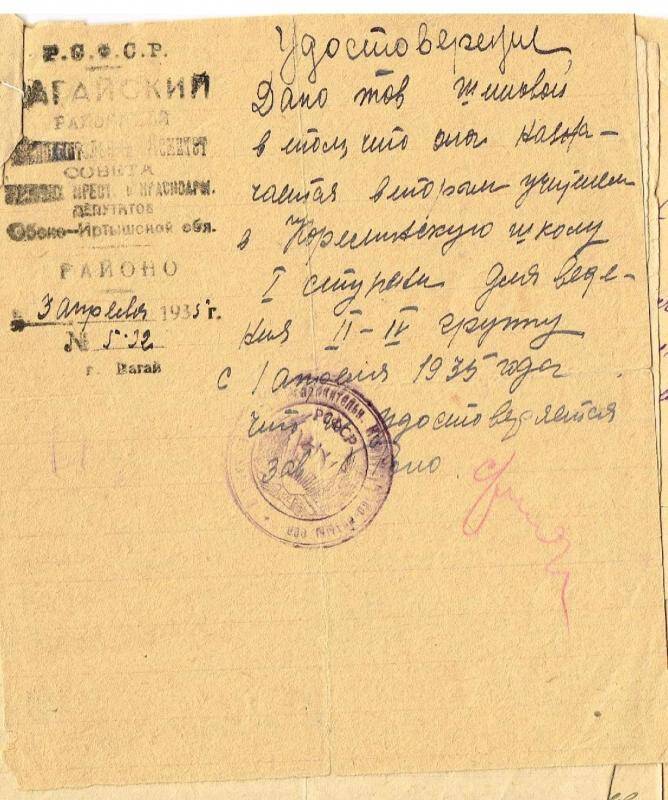 Р.С.Ф.С.Р.
АГАЙСКИЙ
РАЙОННЫЙ
СОВЕТА
КРЕСТ. и КРАСНОАРМ.
ДЕПУТАТОВ
Обско-Иртышской обл.
РАЙОНО
3 апреля 1935 г.
№ 5-32
г. Вагай
Удостоверение
Дано тов
в том, что она назна-
чается вторым учителем
в школу
I ступени для веде-
ния II-IV группу
с 1 апреля 1935 года
что удостоверяется
Зав
РСФСР